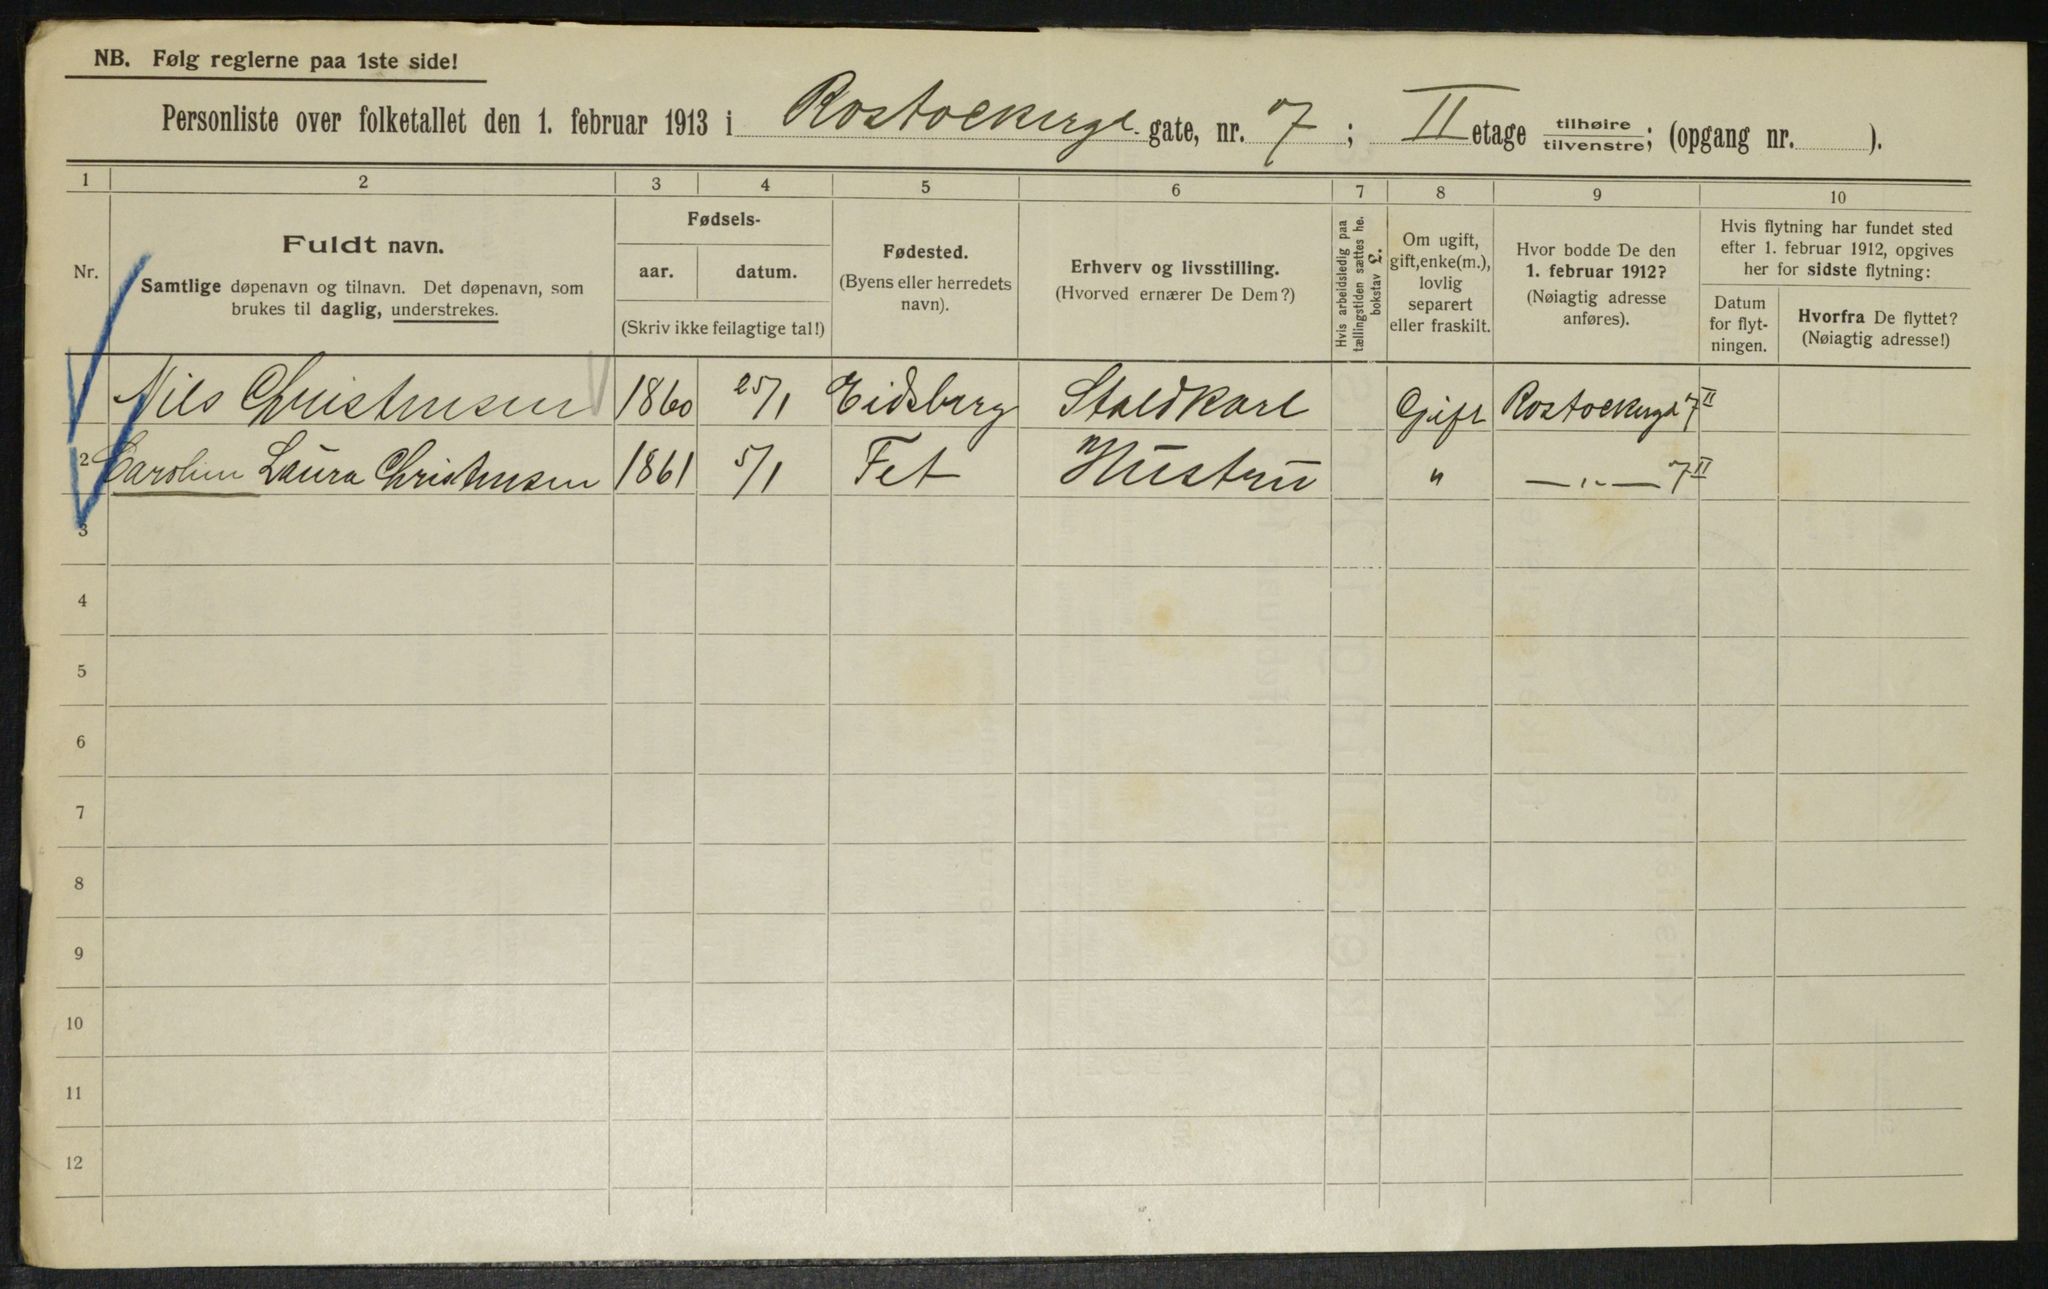 NB. Følg reglerne paa 1ste side!
Personliste over folketallet den 1. februar 1913 i Rostockergd. gate, nr. 7; II etage tilhøire tilvenstre; (opgang nr. ).
1 2 3 4 5 6 7 8 9 10
Nr.
Fuldt navn.
Samtlige døpenavn og tilnavn. Det døpenavn, som
brukes til daglig, understrekes.
Fødsels-
aar. datum.
(Skriv ikke feilagtige tal!)
Fødested.
(Byens eller herredets
navn).
Erhverv og livsstilling.
(Hvorved ernærer De Dem?)
Hvis arbeidsledig paa
tællingstiden sættes he.
bokstav L.
Om ugift,
gift, enke(m.),
lovlig
separert
eller fraskilt.
Hvor bodde De den
1. februar 1912?
(Nøiagtig adresse
anføres).
Hvis flytning har fundet sted
efter 1. februar 1912, opgives
her for sidste flytning:
Datum
for flyt-
ningen.
Hvorfra De flyttet?
(Nøiagtig adresse!)
Nils Christensen 1860 25/1 Eidsberg Staldkarl Gift Rostockergd 7 II
2 Carolin Laura Christensen 1861 5/1 Fet Hustru " — " — 7 II
3
4
5
6
7
8
9
10
11
12